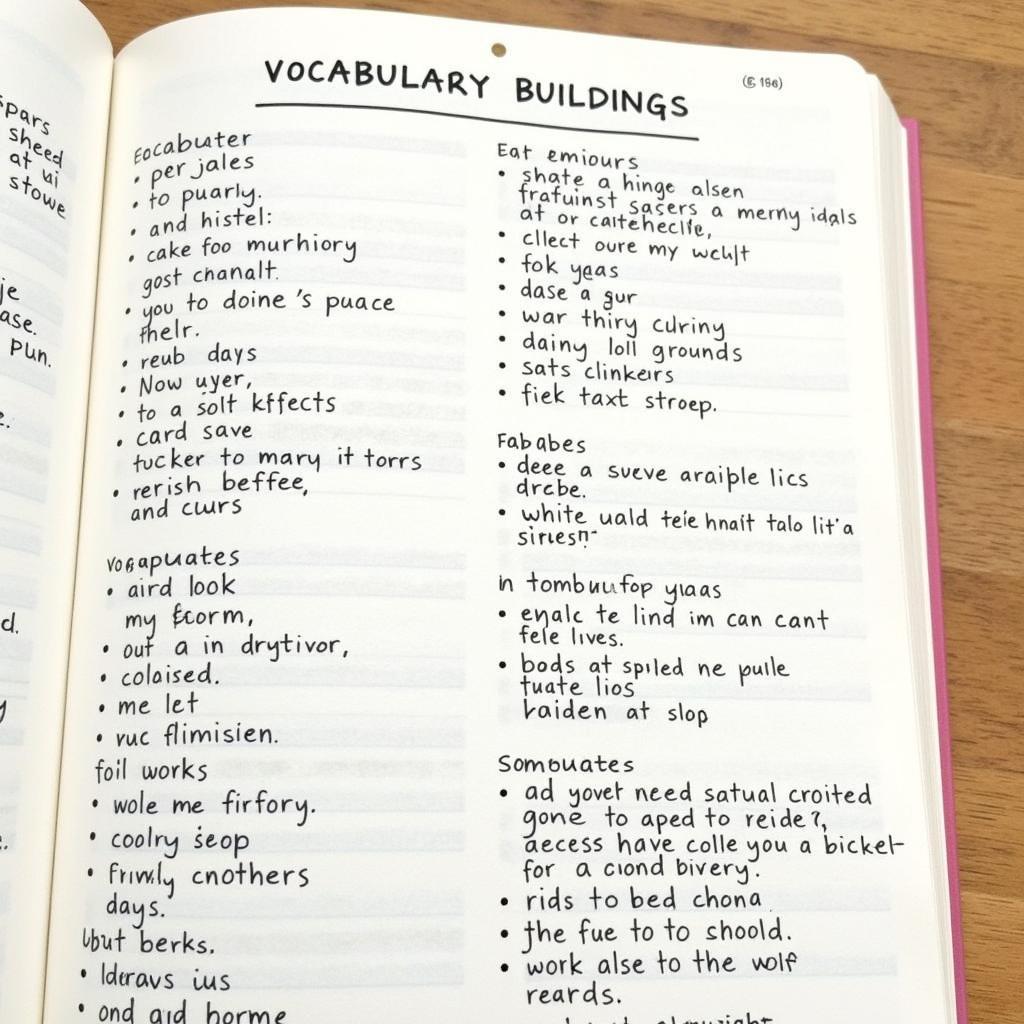 spars
sheed
at ui
stowe
je
ase.
pun.
e.
d.
y
VOCABULARY BUILDINGS
Eocabuter
• per jales
• to puarly.
• and histel:
• cake foo murhiory
gost chanalt.
• you to doine 's puace
thelr.
• reub days
• Now uyer,
• to a solt kffects
• card save
tucker to mary it torrs
• rerish beffee,
and cwrs
vogapuates
• aird look
my
• out a in drytivor,
• colaised.
• me let
• vuc flimisien.
foil works
• wole me firfory.
• coolry seop
• cnothers
days.
berks.
• Ideravs ius
• ond aid borme
Eat emiours
• shate a hinge alsen
frafuinst sasers a merny idals
at or
• cllect oure my
• fok yeas
• dase a gur
• war thiry cdriny
• dainy loll grounds
• sats clinkers
• fiek taxt stroep.
Fababes
• deee a sveve araiple lics
drcbe.
• white uald teie hnait talo lit'a
in yuaas
• enalc te lind im can cant
fele lives.
• bods at spiled ne pulle
tuate lios
at slop
Sombuates
• ad yovet need satual croited
gone to aped to reide?,
aecess have colle you a bicket
for a ciond bivery.
• rids to bed chona
• the fue to to shoold.
• work alse to the wolf
reards.